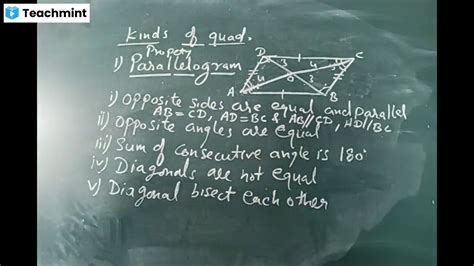 Teachmint
Kinds of quad.
Property
i) Parallelogram
D C
A B
O
4 3 4 3
i) Opposite sides are equal and parallel
AB=CD, AD=BC & AB//CD, AD//BC
ii) Opposite angles are equal
iii) Sum of consecutive angle is 180°
iv) Diagonals are not equal
v) Diagonal bisect each other